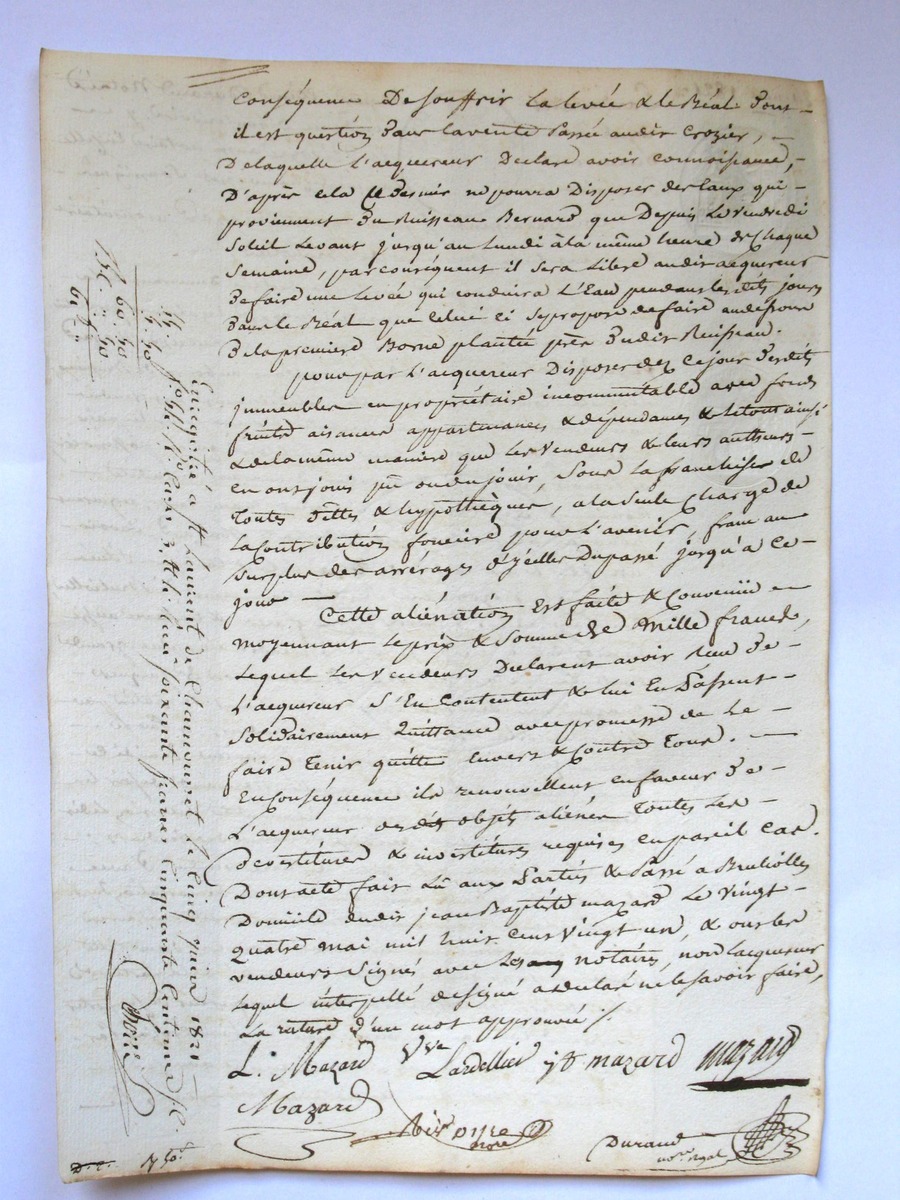 Conséquence De souffrir la levée & le Béal Dont
il est question Dans la vente passée audit Crozier, —
De laquelle L'acquereur Declare avoir connoissance, —
D'après cela Ce Dernier ne pourra Disposer des Eaux qui
proviennent Du Ruisseau Bernard que Depuis le vendredi
Soleil Levant jusqu'au Lundi à la même heure De Chaque
Semaine, par conséquent il sera Libre audit acquereur
De faire une Levée qui conduira L'Eau pendant lesdits jours
Dans le Béal que Celui ci se propose de faire au dessous
De la premiere Borne plantée près Dudit Ruisseau.
pour par L'acquereur Disposer dez Ce jour Desdits
immeubles en propriétaire incommutable avec fonds
fruits aisances appartenances & dépendances & le tout ainsi
& de la même maniere que les Vendeurs & leurs autheurs
en ont joui pu ou du jouir, Sous la franchise de
Toutes dettes & hypothèques, a la seule Charge de
La Contribution fonciere pour L'avenir, franc au
Surplus des arrérages d'ycelles Du passé jusqu'a Ce
jour —
Cette aliénation Est faite & Convenüe
moyennant le prix & Somme De Mille francs,
Lequel Les Vendeurs Declarent avoir Reçu De
L'acquereur S'En Contentent & lui En Passent
Solidairement Quittance avec promesse de Le
faire Tenir quitte Envers & Contre Tous. —
En Conséquence ils renouvellent en faveur De
L'acquereur desdits objets aliénés Toutes Les
Devestitures & investitures requises en pareil Cas.
Dont acte fait Lû aux Parties & Passé a Brulliolles
Domicile dudit jean Baptiste mazard Le Vingt
Quatre mai mil huit Cent Vingt un, & ont les
vendeurs Signé avec Les notaires, non Lacquereur
Lequel interpellé de Signé a declaré ne le savoir faire,
La rature d'un mot approuvée ./.
L. Mazard Vve Lardellier j B mazard mazard
Mazard
Durand
nore. royal
Enregistré à St. Laurent de Chamousset le Cinq juin 1821
Reçu Soixante francs Cinquante Centimes
55.
5. 50
60. 50